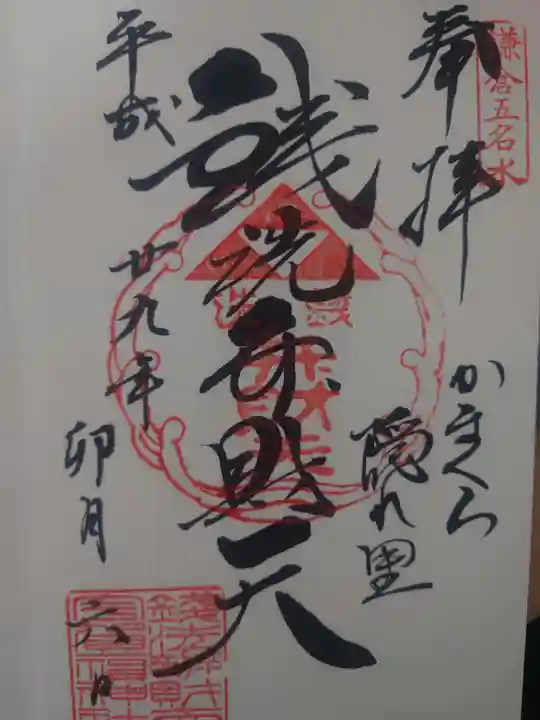 鎌倉五名水
奉拝
かまくら
隠れ里
銭洗弁財天
平成廿九年
卯月六日